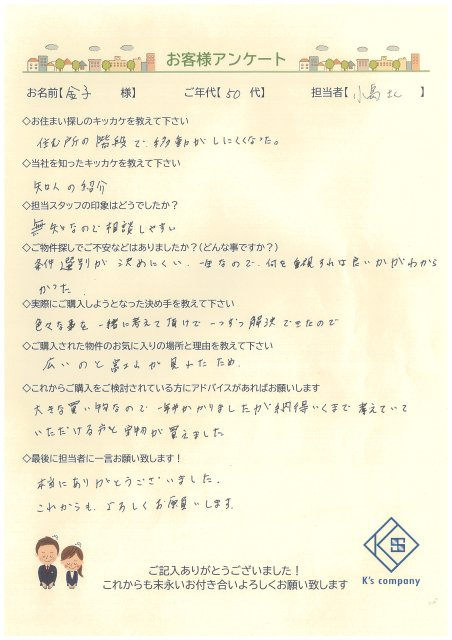 お客様アンケート
お名前【 金子 様】 ご年代【 50 代】 担当者【 小島さん 】
◇お住まい探しのキッカケを教えて下さい
住む所の階段で移動がしにくくなった。
◇当社を知ったキッカケを教えて下さい
知人の紹介
◇担当スタッフの印象はどうでしたか？
無知なので相談しやすい
◇ご物件探しでご不安などはありましたか？（どんな事ですか？）
条件選別が決めにくい、一生なので、何を重視すれば良いかがわから
なかった
◇実際にご購入しようとなった決め手を教えて下さい
色々な事を一緒に考えて頂けて一つずつ解決できたので
◇ご購入された物件のお気に入りの場所と理由を教えて下さい
広いのと富士山が見れたため
◇これからご購入をご検討されている方にアドバイスがあればお願いします
大きな買い物なので一年かかりましたが納得いくまで考えていて
いただける戸と物が買えました
◇最後に担当者に一言お願い致します！
本当にありがとうございました。
これからも、よろしくお願いします。
ご記入ありがとうございました！
これからも末永いお付き合いよろしくお願い致します
K's company